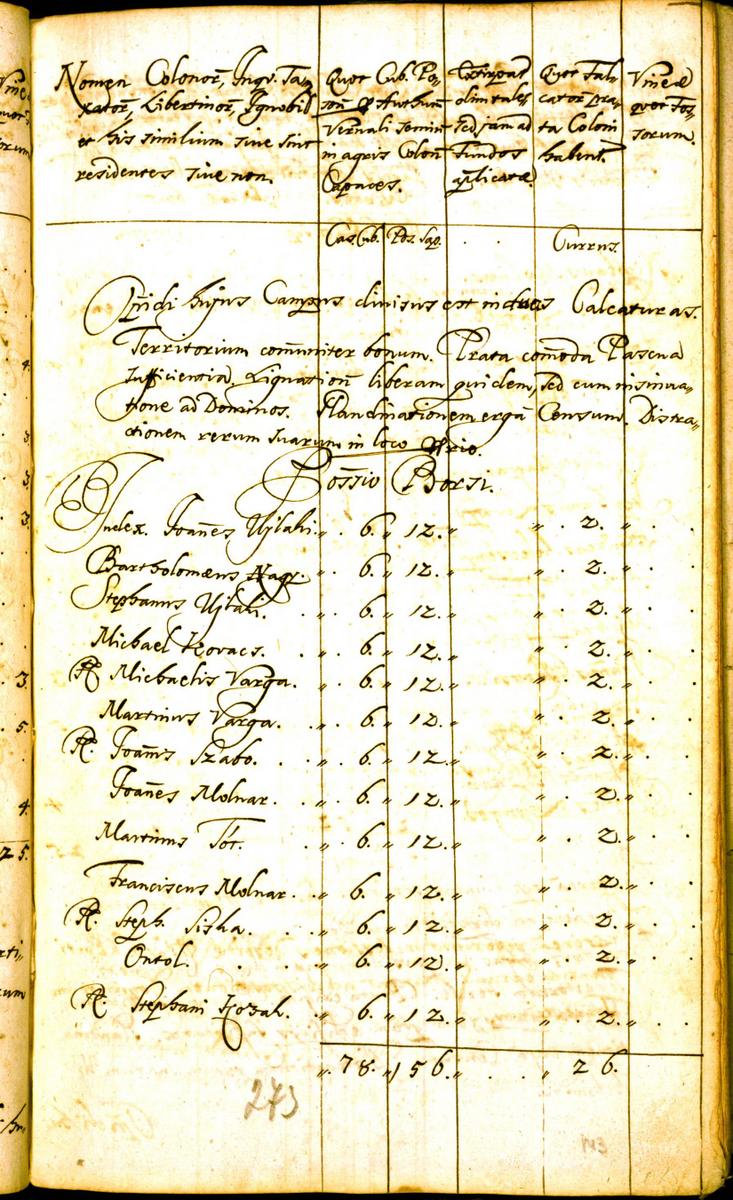 Nomen Colonor, Inqv. Ta-
xator, Libertinor, Ignobil
et his similium sive sint
residentes sive non.
Quot Cub. Po-
son. Authun
Vernali semin
in agris Colon
Capaces.
Extirpat
olim tales
sed jam ad
Fundos
applicatæ
Quot Fal-
cator Pra-
ta Coloni
habent.
Vineæ
quot Fos-
sorum.
Cas. Cub. Pos. Sap. Currus.
Oppidi hujus Campus divisus est in duas Calcaturas.
Territorium com̄uniter bonum. Prata com̄oda Pascua
Sufficientia. Lignation liberam quidem, sed cum insinua-
tione ad Dominos. Plandinationem erga Censum. Distra-
ctionem rerum suarum in loco
Possio Borsi.
Judex. Joanēs Ujlaki. 6. 12. 2.
Bartholomæus Nagy. 6. 12. 2.
Stephanus Ujlaki. 6. 12. 2.
Michael Kovacs. 6. 12. 2.
R. Michaelis Varga. 6. 12. 2.
Martinus Varga. 6. 12. 2.
R. Joanīs Szabo. 6. 12. 2.
Joanēs Molnar. 6. 12. 2.
Martinus Tót. 6. 12. 2.
Franciscus Molnar. 6. 12. 2.
R. Steph. Siska. 6. 12. 2.
Ontol. 6. 12. 2.
R. Stephani Kozak. 6. 12. 2.
78. 156. 26.
273